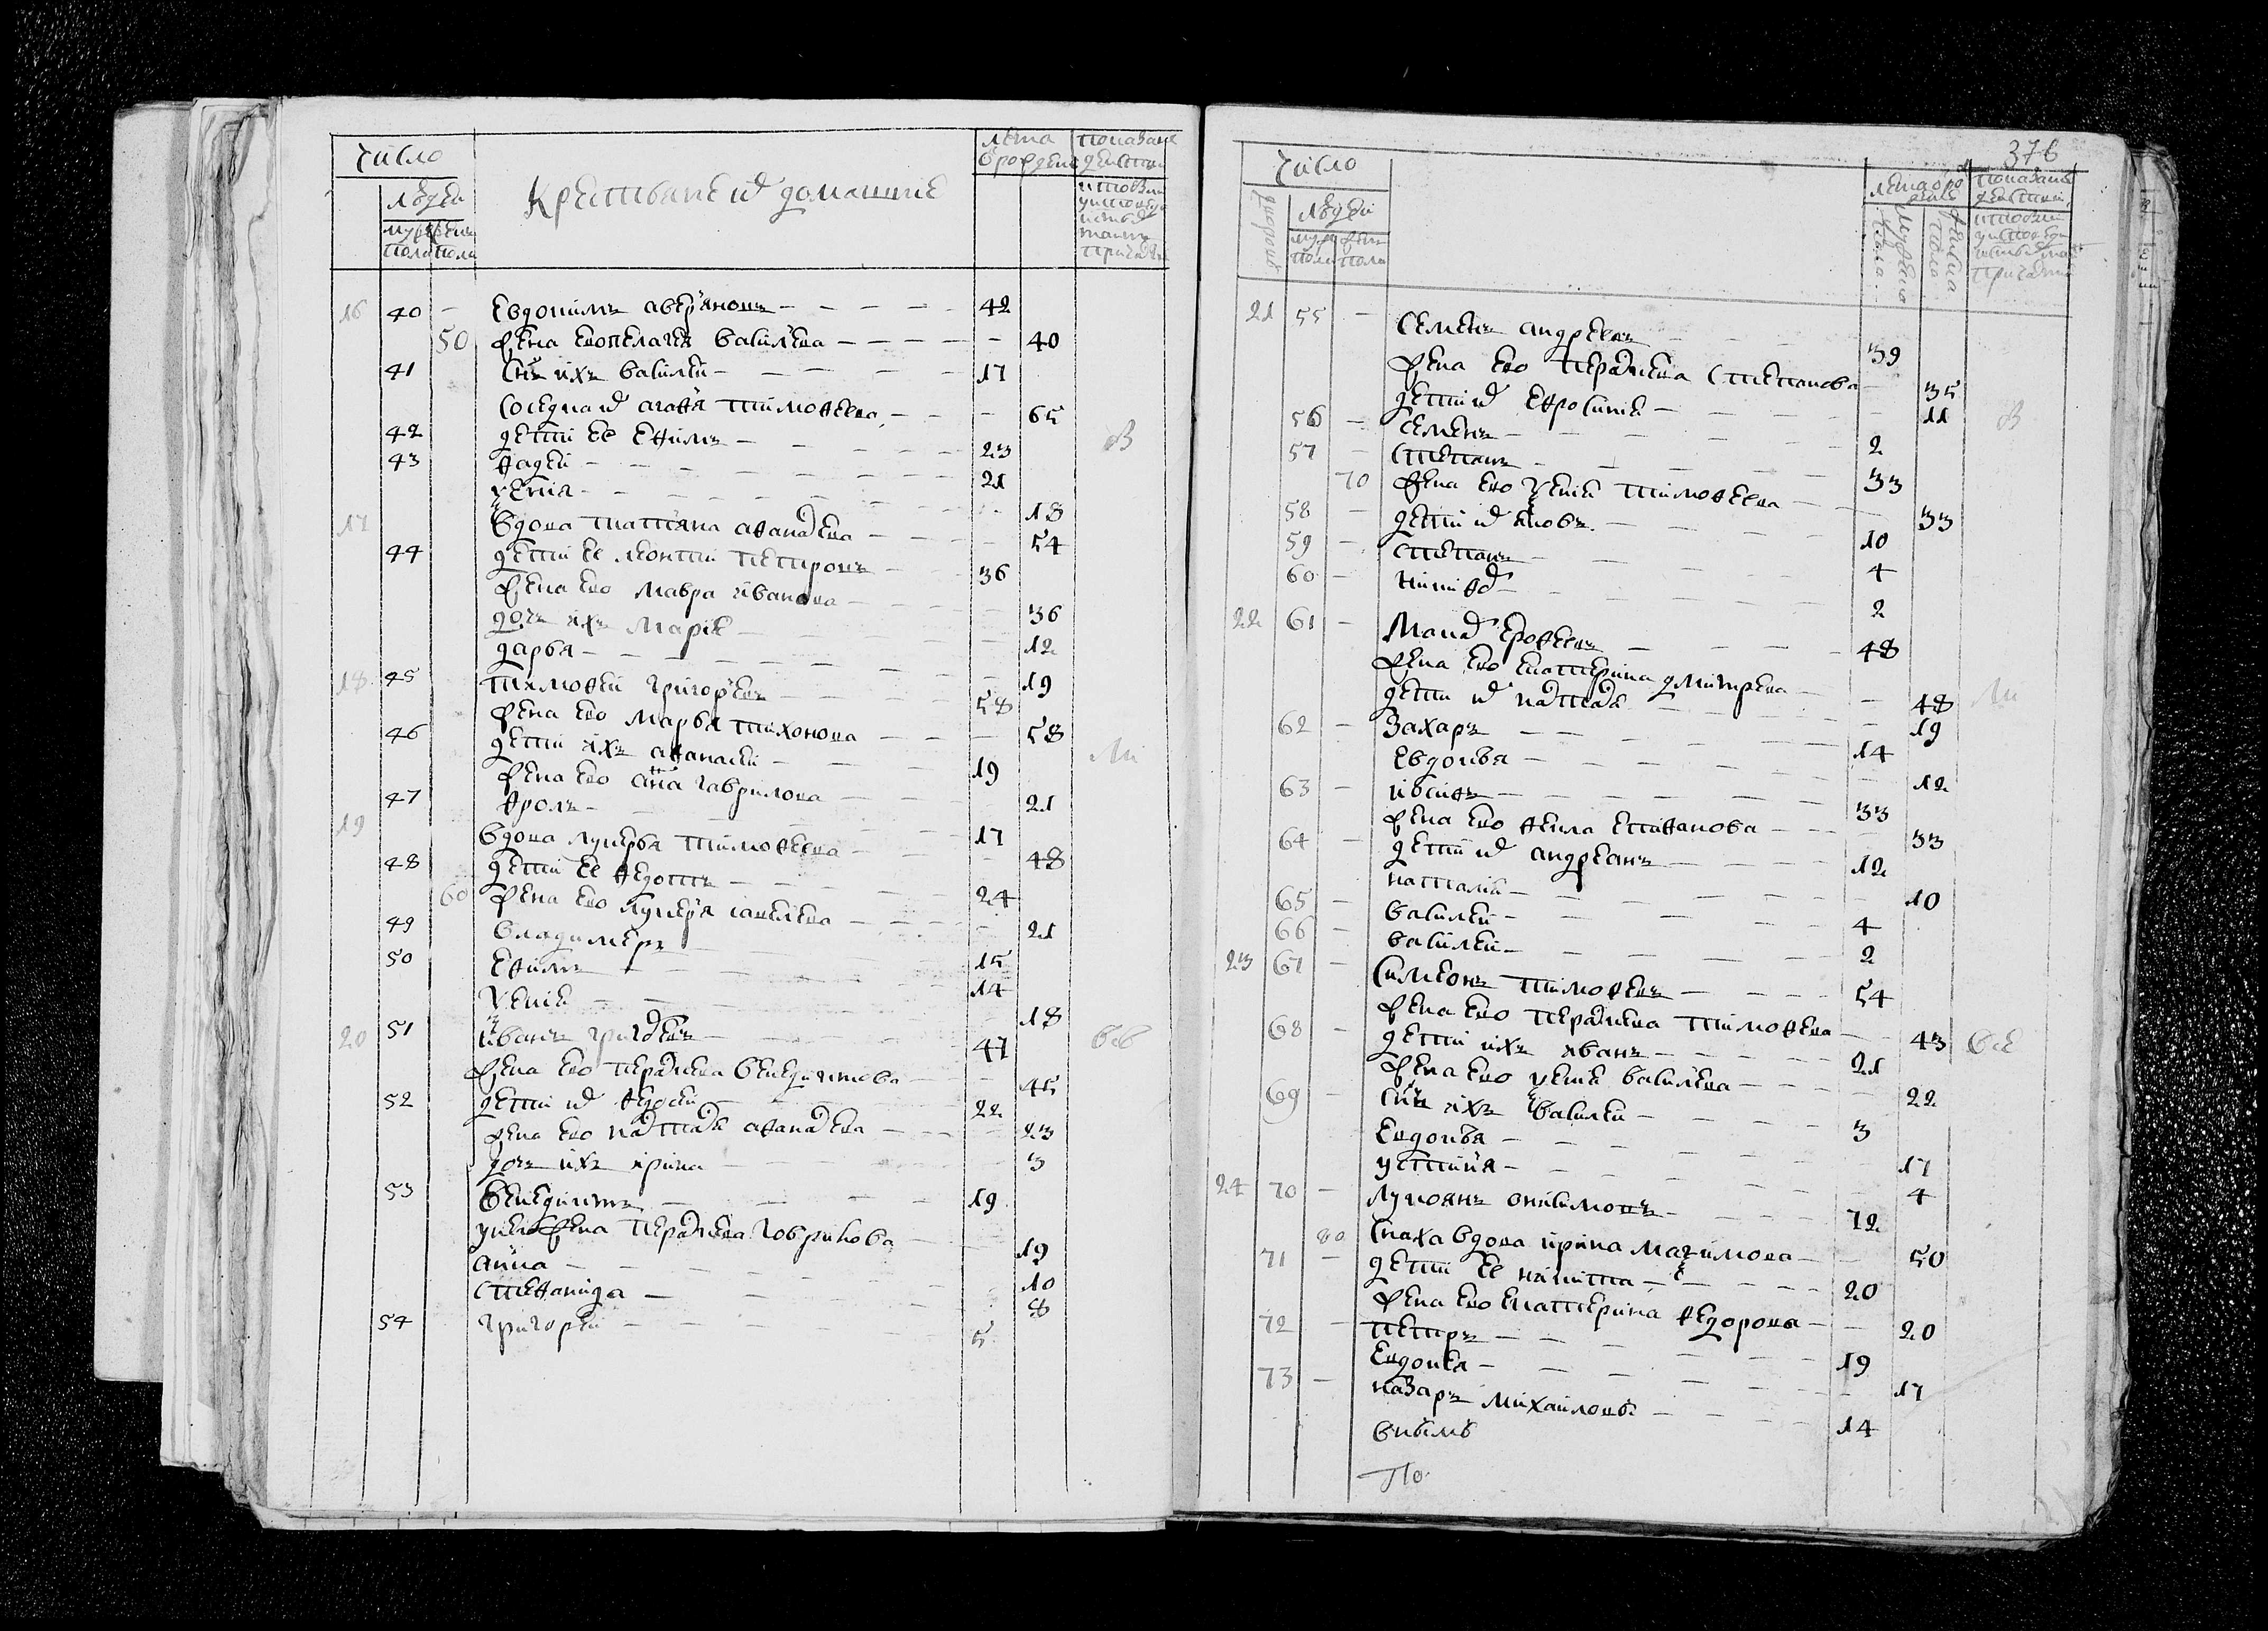 число
людей
муж жен
пола пола
Крестьяне и домашние
лета
от рождения
показание
действа
16 40 - Евдоким Аверьянов 42
50 жена ево Пелагея Васильева 40
41 Сын их Василей 17
Соседка их Агафья Тимофеева 65
42 дети ее Ефим 23
43 Фадей 21
Ксения 18
17 вдова Татьяна Афанасьева 54
44 дети ее Леонтий Петров 36
жена ево Мавра Иванова 36
дочь их Мария 12
Дарья 19
18 45 Тимофей Григорьев 58
жена ево Марфа Тихонова 58
46 дети их Афанасей 19
жена ево Анна Гаврилова 21
47 Фрол 17
19 вдова Лукерья Тимофеева 48
48 дети ее Федот 24
60 жена ево Лукерья Савельева 21
49 Владимер 15
50 Ефим 14
Ксения 18
20 51 Иван Григорьев 47
жена ево Парасковья Венедиктова 45
52 дети их Федосей 22
жена ево Наталья Афанасьева 23
дочь их Ирина 3
53 Венедикт 19
у него жена Парасковья Гаврилова 19
Анна 10
Стефанида 8
54 Григорей 5
376
число
дворов
людей
муж жен
пола пола
лета от рождения
мужеска пола
женска пола
показание
действа
21 55 - Семен Андреев 39
жена ево Парасковья Степанова 35
дети их Ефросиния 11
56 - Семен 2
57 - Степан 33
70 жена ево Ксения Тимофеева 33
58 - дети их Яков 10
59 - Степан 4
60 - Никифор 2
22 61 - Макар Ерофеев 48
жена ево Екатерина Дмитрева 48
дети их Наталья 19
62 - Захар 14
Евдокия 12
63 - Иосиф 33
жена ево Фекла Епифанова 33
64 - дети их Андреан 12
Наталия 10
65 - Василей 4
66 - Василей 2
23 67 - Симеон Тимофеев 54
жена ево Парасковья Тимофеева 43
68 - дети их Иван 21
жена ево Ксения Васильева 22
69 - Сын их Василей 3
Евдокия 17
Устиния 4
24 70 - Лукоян Онисимов 72
80 Сноха вдова Ирина Максимова 50
71 - дети ее Никита 20
жена ево Екатерина Федорова 20
72 - Петр 19
Евдокия 17
73 - Назар Михайлов 14
По